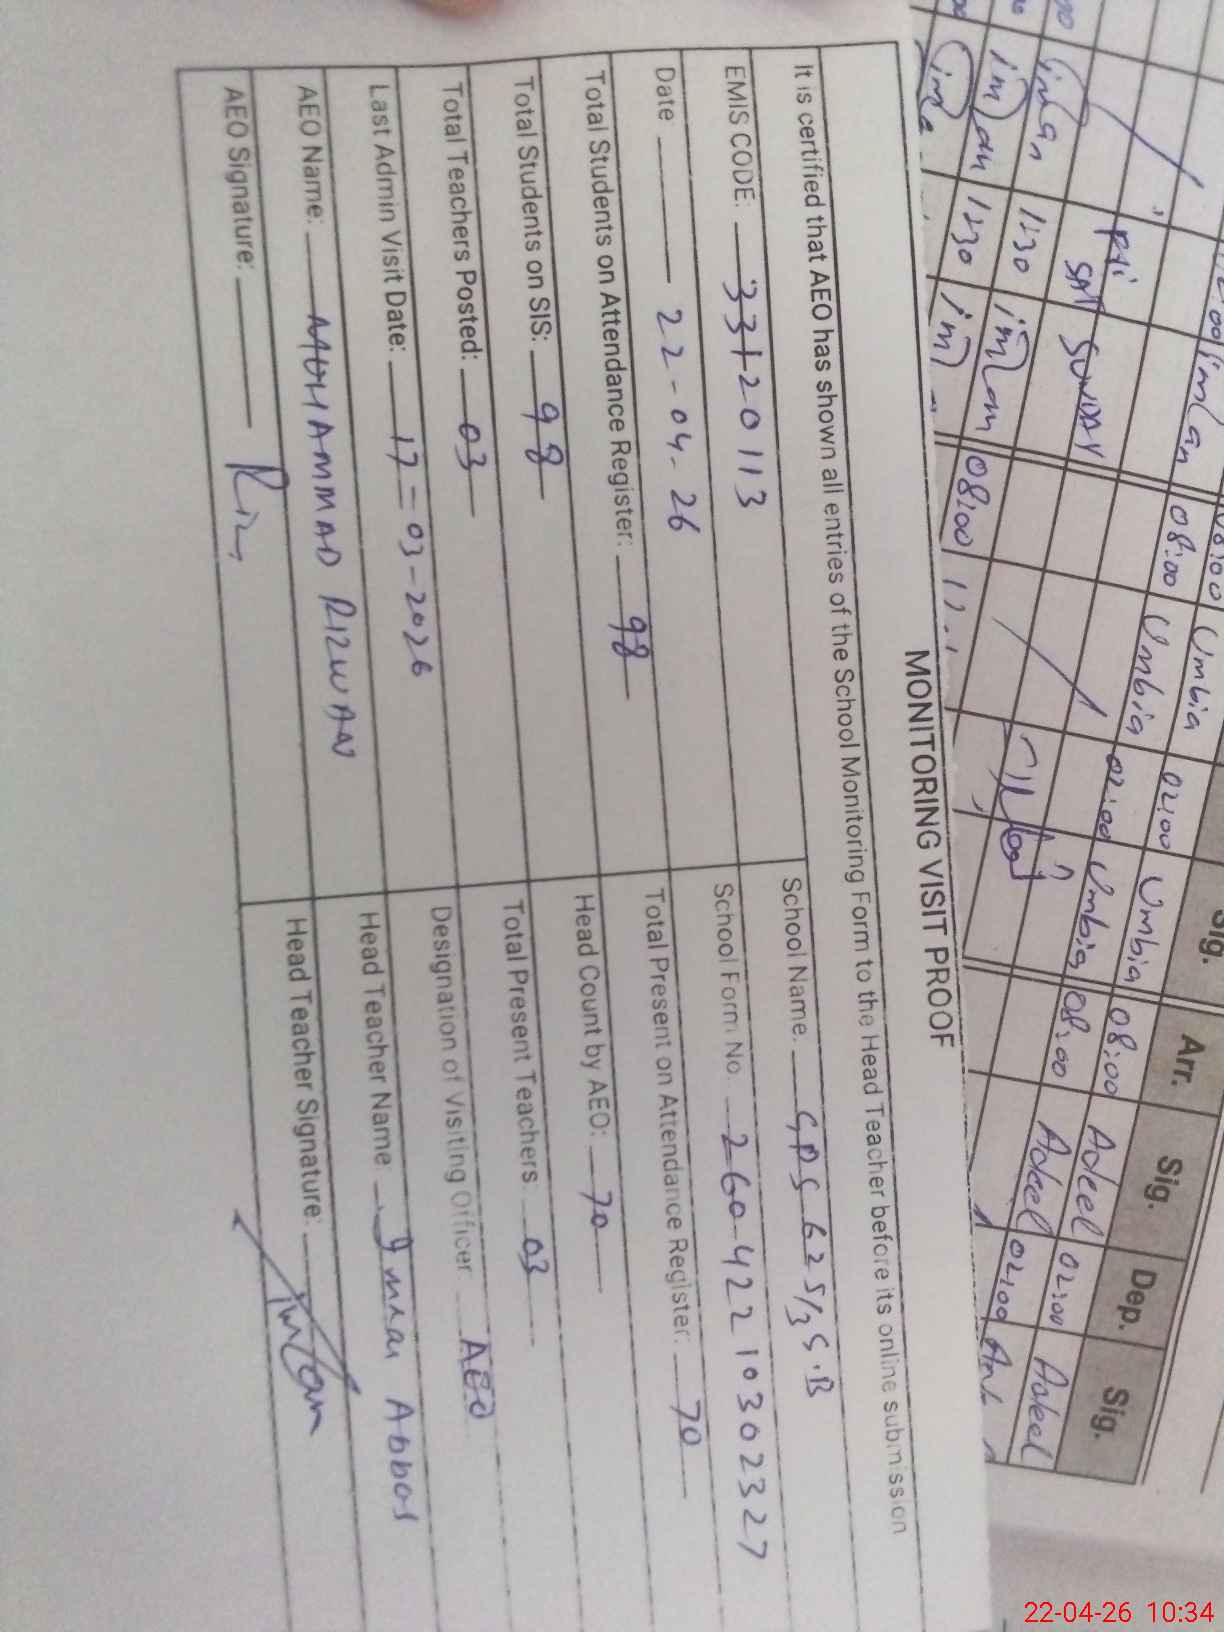 MONITORING VISIT PROOF
It is certified that AEO has shown all entries of the School Monitoring Form to the Head Teacher before its online submission
EMIS CODE: 33120113
School Name. GPS 625/3S.B
Date 22-04-26
School Form No. 260422103023 27
Total Students on Attendance Register: 98
Total Present on Attendance Register: 70
Total Students on SIS: 98
Head Count by AEO: 70
Total Teachers Posted: 03
Total Present Teachers: 03
Last Admin Visit Date: 17-03-2026
Designation of Visiting Officer AEO
AEO Name: MUHAMMAD RIZWAN
Head Teacher Name Imran Abbas
AEO Signature: Riz
Head Teacher Signature: Imran
Sig. Arr. Sig. Dep. Sig.
08:00 Umbia 02:00 Umbia 08:00 Adeel 02:00 Adeel
08:00 Umbia 02:00 Umbia 08:00 Adeel 02:00
SAT SUNDAY
1230
1230
08:00
22-04-26 10:34